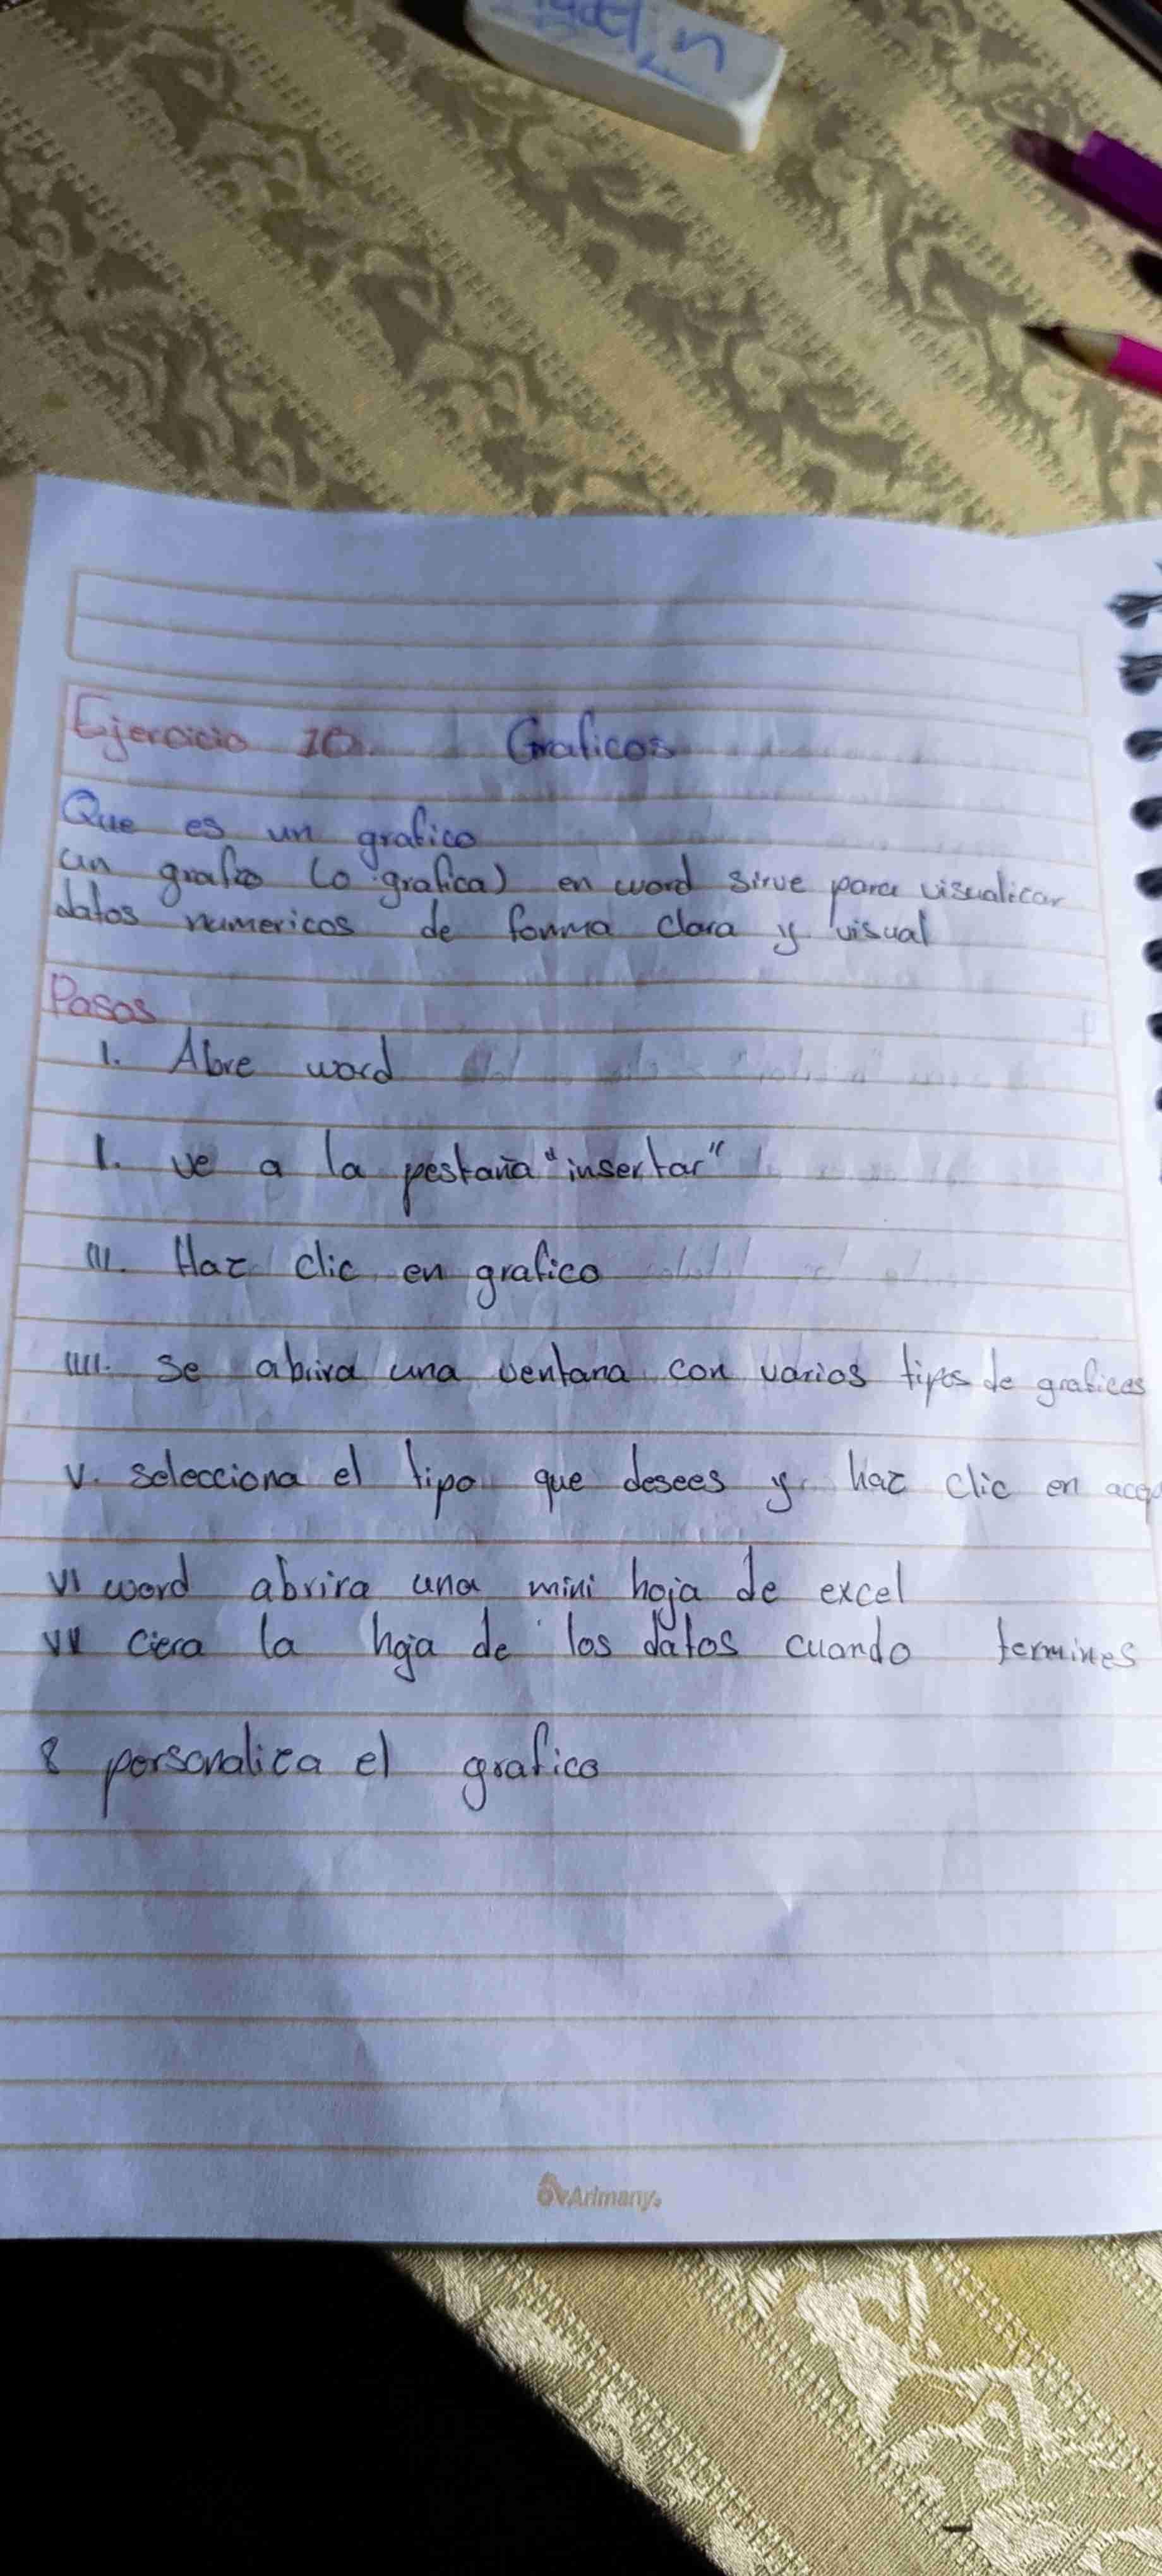 Ejercicio 10. Graficos
Que es un grafico
un grafico (o grafica) en word sirve para visualicar
datos numericos de forma clara y visual
Pasos
I. Abre word
I. ve a la pestaña "insertar"
III. Haz clic en grafico
IIIII. se abrira una ventana con varios tipos de graficos
V. selecciona el tipo que desees y haz clic en acep
VI word abrira una mini hoja de excel
VII ciera la hoja de los datos cuando termines
8 personaliza el grafico
Arimany